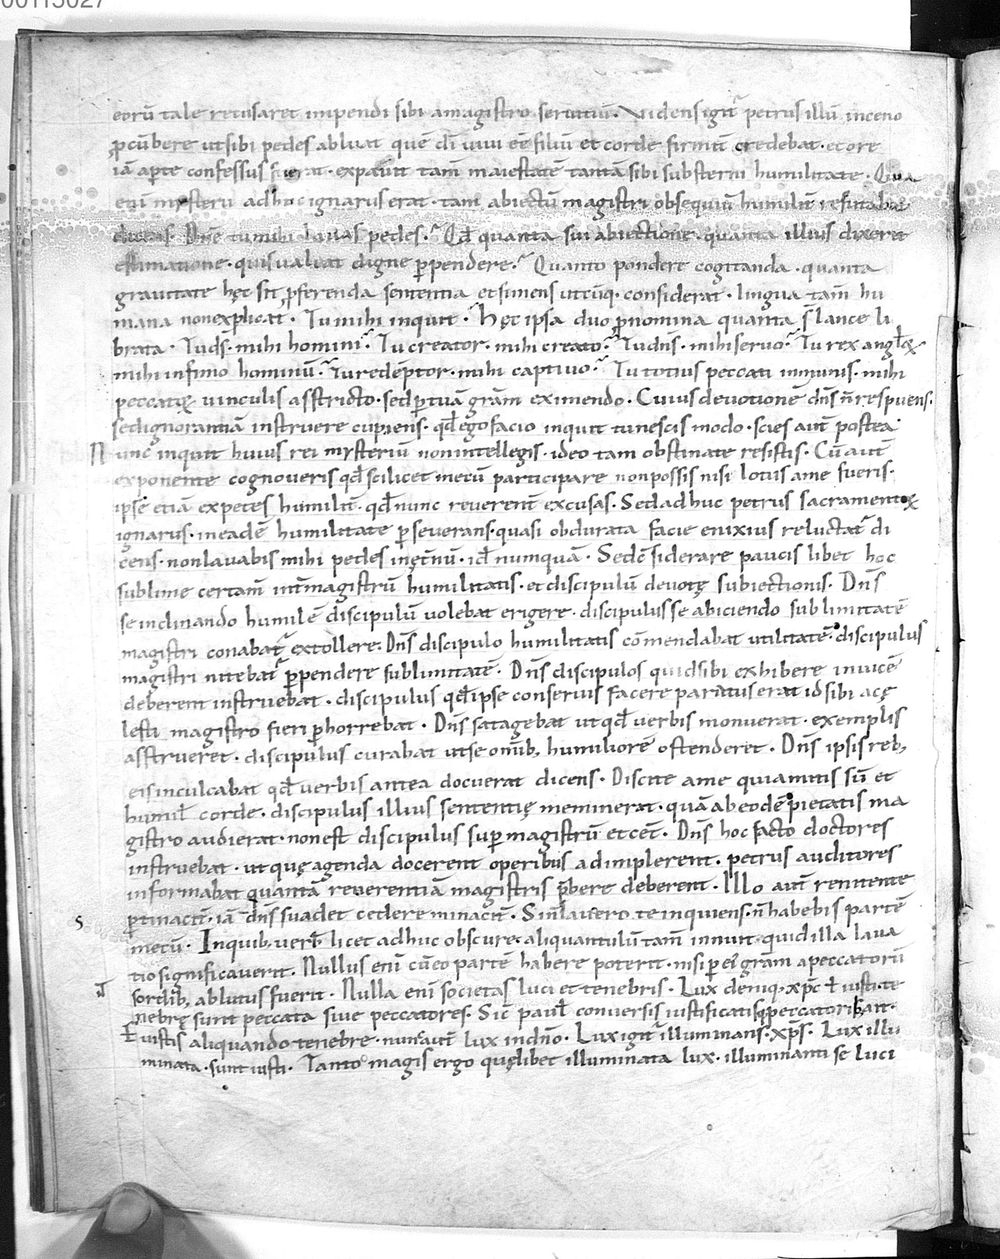 00113027
eorū tale recusaret impendi sibi amagistro seruitiū. Vidensigit᷑ petrus illū inceno
ꝓcūbere utsibi pedes abluat quē dī uiui eē filiū et corde firmit̄ credebat · et ore
iā ap̄te confessus fuerat · expauit tam̄ maiestatē tantā sibi substerni humilitate · Qui a
eni mysterii adhuc ignarus erat · tam̄ abiectū magistri obsequiū humilit̄ refutabat
dicens. Dn̄e tu mihi lauas pedes.᷑ Qd̄ quanta sui abiectione · quanta illius dixerit
estimatione · quis ualeat digne p̱pendere.᷑ Quanto pondere cogitanda · quanta
grauitate hęc sit p̱ferenda sententia et si mens utcūq· considerat · lingua tam̄ hu
mana nonexplicat · Tu mihi inquit .᷑ hęc ipsa duo p̄nomina quanta s̄ lance li
brata · Tuds̄· mihi homini.᷑ Tu creator· mihi creato.᷑ Tudn̄s · mihi seruo.᷑ Tu rex anglꝝ
mihi infimo hominū.᷑ Tu redēptor· mihi captiuo.᷑ Tu totius peccati inmunis · mihi
peccatoꝝ uinculis asstricto· sed p̱tuā grām eximendo · Cuius deuotionē dn̄s n̄ respuens·
sedignorantiā instruere cupiens · qd̄ egofacio inquit tu nescis modo · scies aut̄ postea·
Nunc inquit huius rei mysteriū nonintellegis · ideo tam obstinate resistis · Cū aut̄
exponente cognoueris qd̄ scilicet mecū participare nonpossis nisi lotus ame fueris·
ipse etiā expetes humilit̄· qd̄ nunc reuerent̄ excusas· Sedadhuc petrus sacramentoꝝ
ignarus · ineadē humilitate p̱seuerans·quasi obdurata facie enixius reluctat᷑ di
cens · nonlauabis mihi pedes inęt̄nū · id̄ numquā · Sed c̄siderare paucis libet hoc
sublime certam̄ int̄magistrū humilitatis · et discipulū deuotę subiectionis · Dn̄s
se inclinando humilē discipulū uolebat erigere · discipulus se abiciendo sublimitatē
magistri conabat᷑ extollere· Dn̄s discipulo humilitatis cōmendabat utilitatē· discipulus
magistri nitebat᷑ p̱pendere sublimitatē · Dn̄s discipulos quidsibi exhibere inuicē
deberent instruebat · discipulus qd̄ ipse conseruis facere paratus erat id sibi acę
lesti magistro fieri p̱horrebat · Dn̄s satagebat ut qd̄ uerbis monuerat · exemplis
asstrueret · discipulus curabat utse omīb; humiliorē ostenderet · Dn̄s ipsis reb;
eis inculcabat qd̄ uerbis antea docuerat dicens · Discite ame quiamitis sū et
humil̄ corde · discipulus illius sententię meminerat · quā ab eodē pietatis ma
gistro audierat · nonest discipulus sup̱ magistrū et cet̄ · Dn̄s hoc facto doctores
instruebat · ut quę agenda docerent operibus adimplerent · petrus auditores
informabat quantā reuerentiā magistris p̄bere deberent · Illo aut̄ renitente
p̱tinacit̄ · iā dn̄s suadet cedere minacit̄ · Sin̄lauero te inquiens· n̄ habebis partē
mecū · Inquib; uerb̄ licet adhuc obscure· aliquantulū tam̄ innuit· quid illa laua
tio significauerit · Nullus eni cū eo partē habere poterit · nisi p̱ ei grām apeccatorū
sordib; ablutus fuerit · Nulla eni societas luci et tenebris · Lux deniq· xp̄c ł iusti · te
nebrę sunt peccata siue peccatores · Sic paul̄ conuersis iustificatisq; peccatoribꝰ ait·
Eiustis aliquando tenebre · nunc aut̄ lux indn̄o · Lux igit᷑ illuminans · xp̄s · Lux illu
minata · sunt iusti · Tanto magis ergo quęlibet illuminata lux · illuminanti se luci